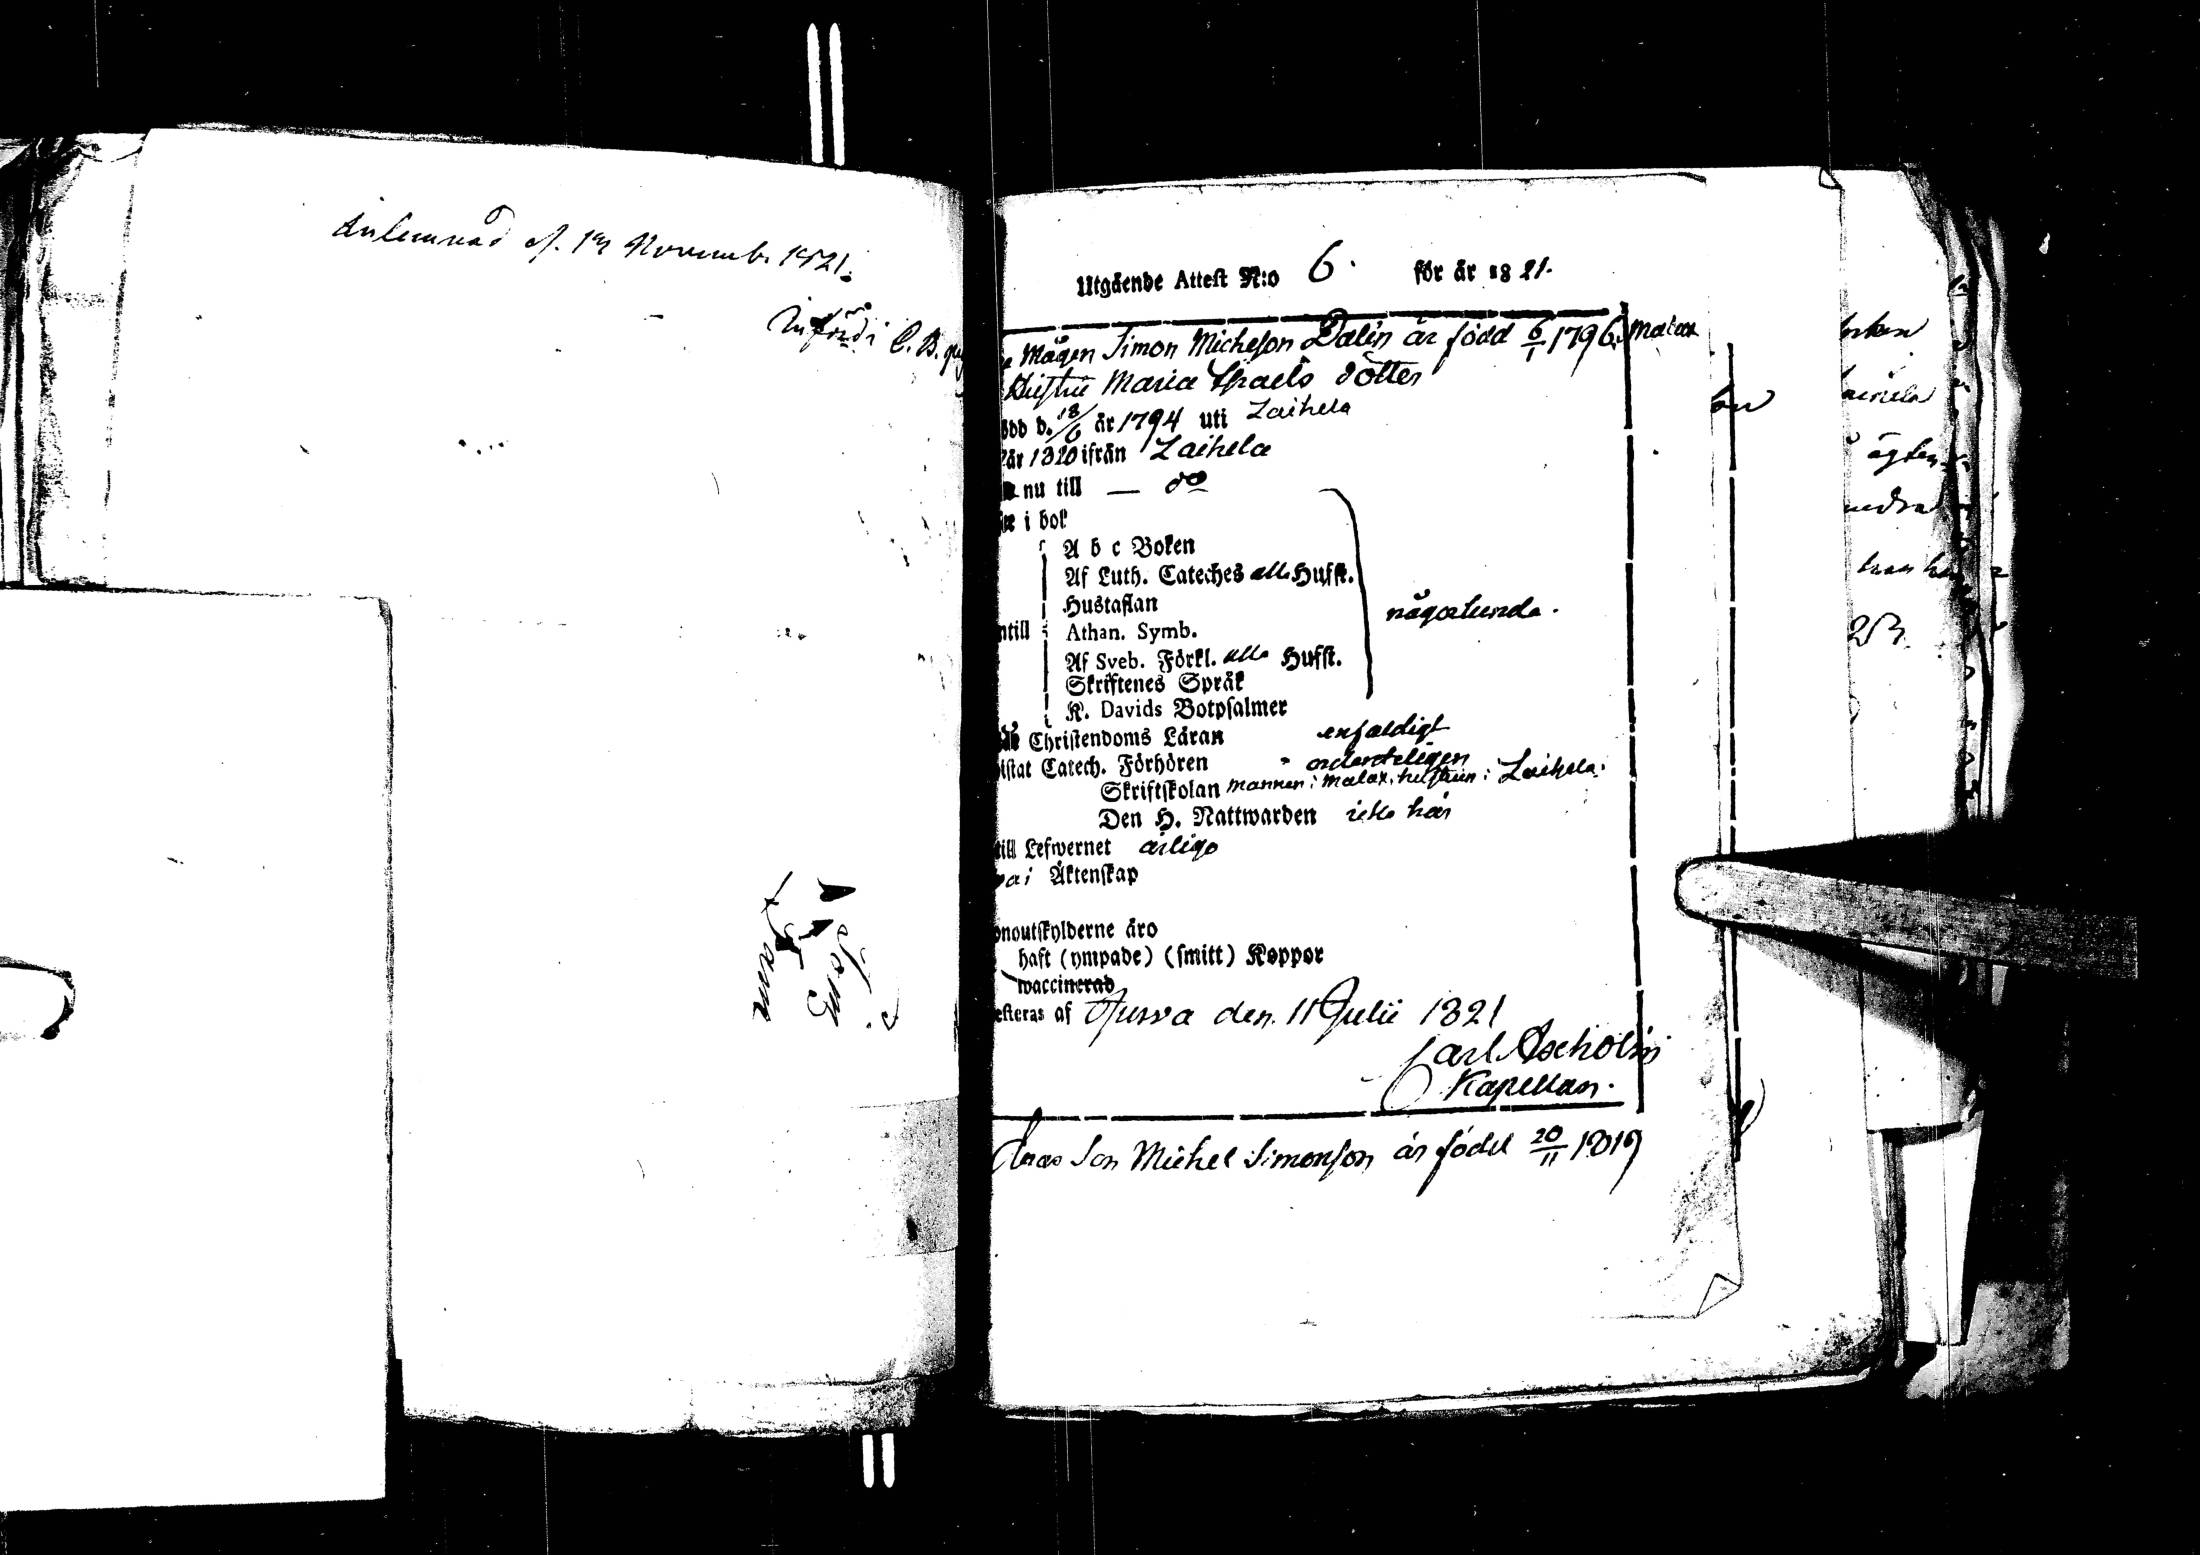 Inlemnad d. 12 Novemb. 1821.
Införd i C. B. pag
Utgående Attest N:o 6. för år 1821.
Mågen Simon Michelson Dalin är född 6/1 1796. i Malax
Hustru Maria Israels dotter
ödd d. 18/6 år 1794 uti Laihela
år 1820 ifrån Laihela
nu till — do
i bok
A b c Boken
Af Luth. Cateches alla Hufst.
Hustaflan
ntill Athan. Symb.
Af Sveb. Förkl. alla Hufst.
Skriftenes Språk
K. Davids Botpsalmer
någorlunda.
Christendoms Läran enfaldigt
istat Catech. Förhören ordenteligen
Skriftskolan mannen i Malax, hustrun i Laihela.
Den H. Nattwarden icke här
till Lefwernet ärliga
i Äktenskap
onoutskylderne äro
haft (ympade) (smitt) Koppor
waccinerad
esteras af Jurva den 11 Julii 1821
Carl Ascholin
Kapellan.
deras Son Michel Simonson är född 20/11 1819